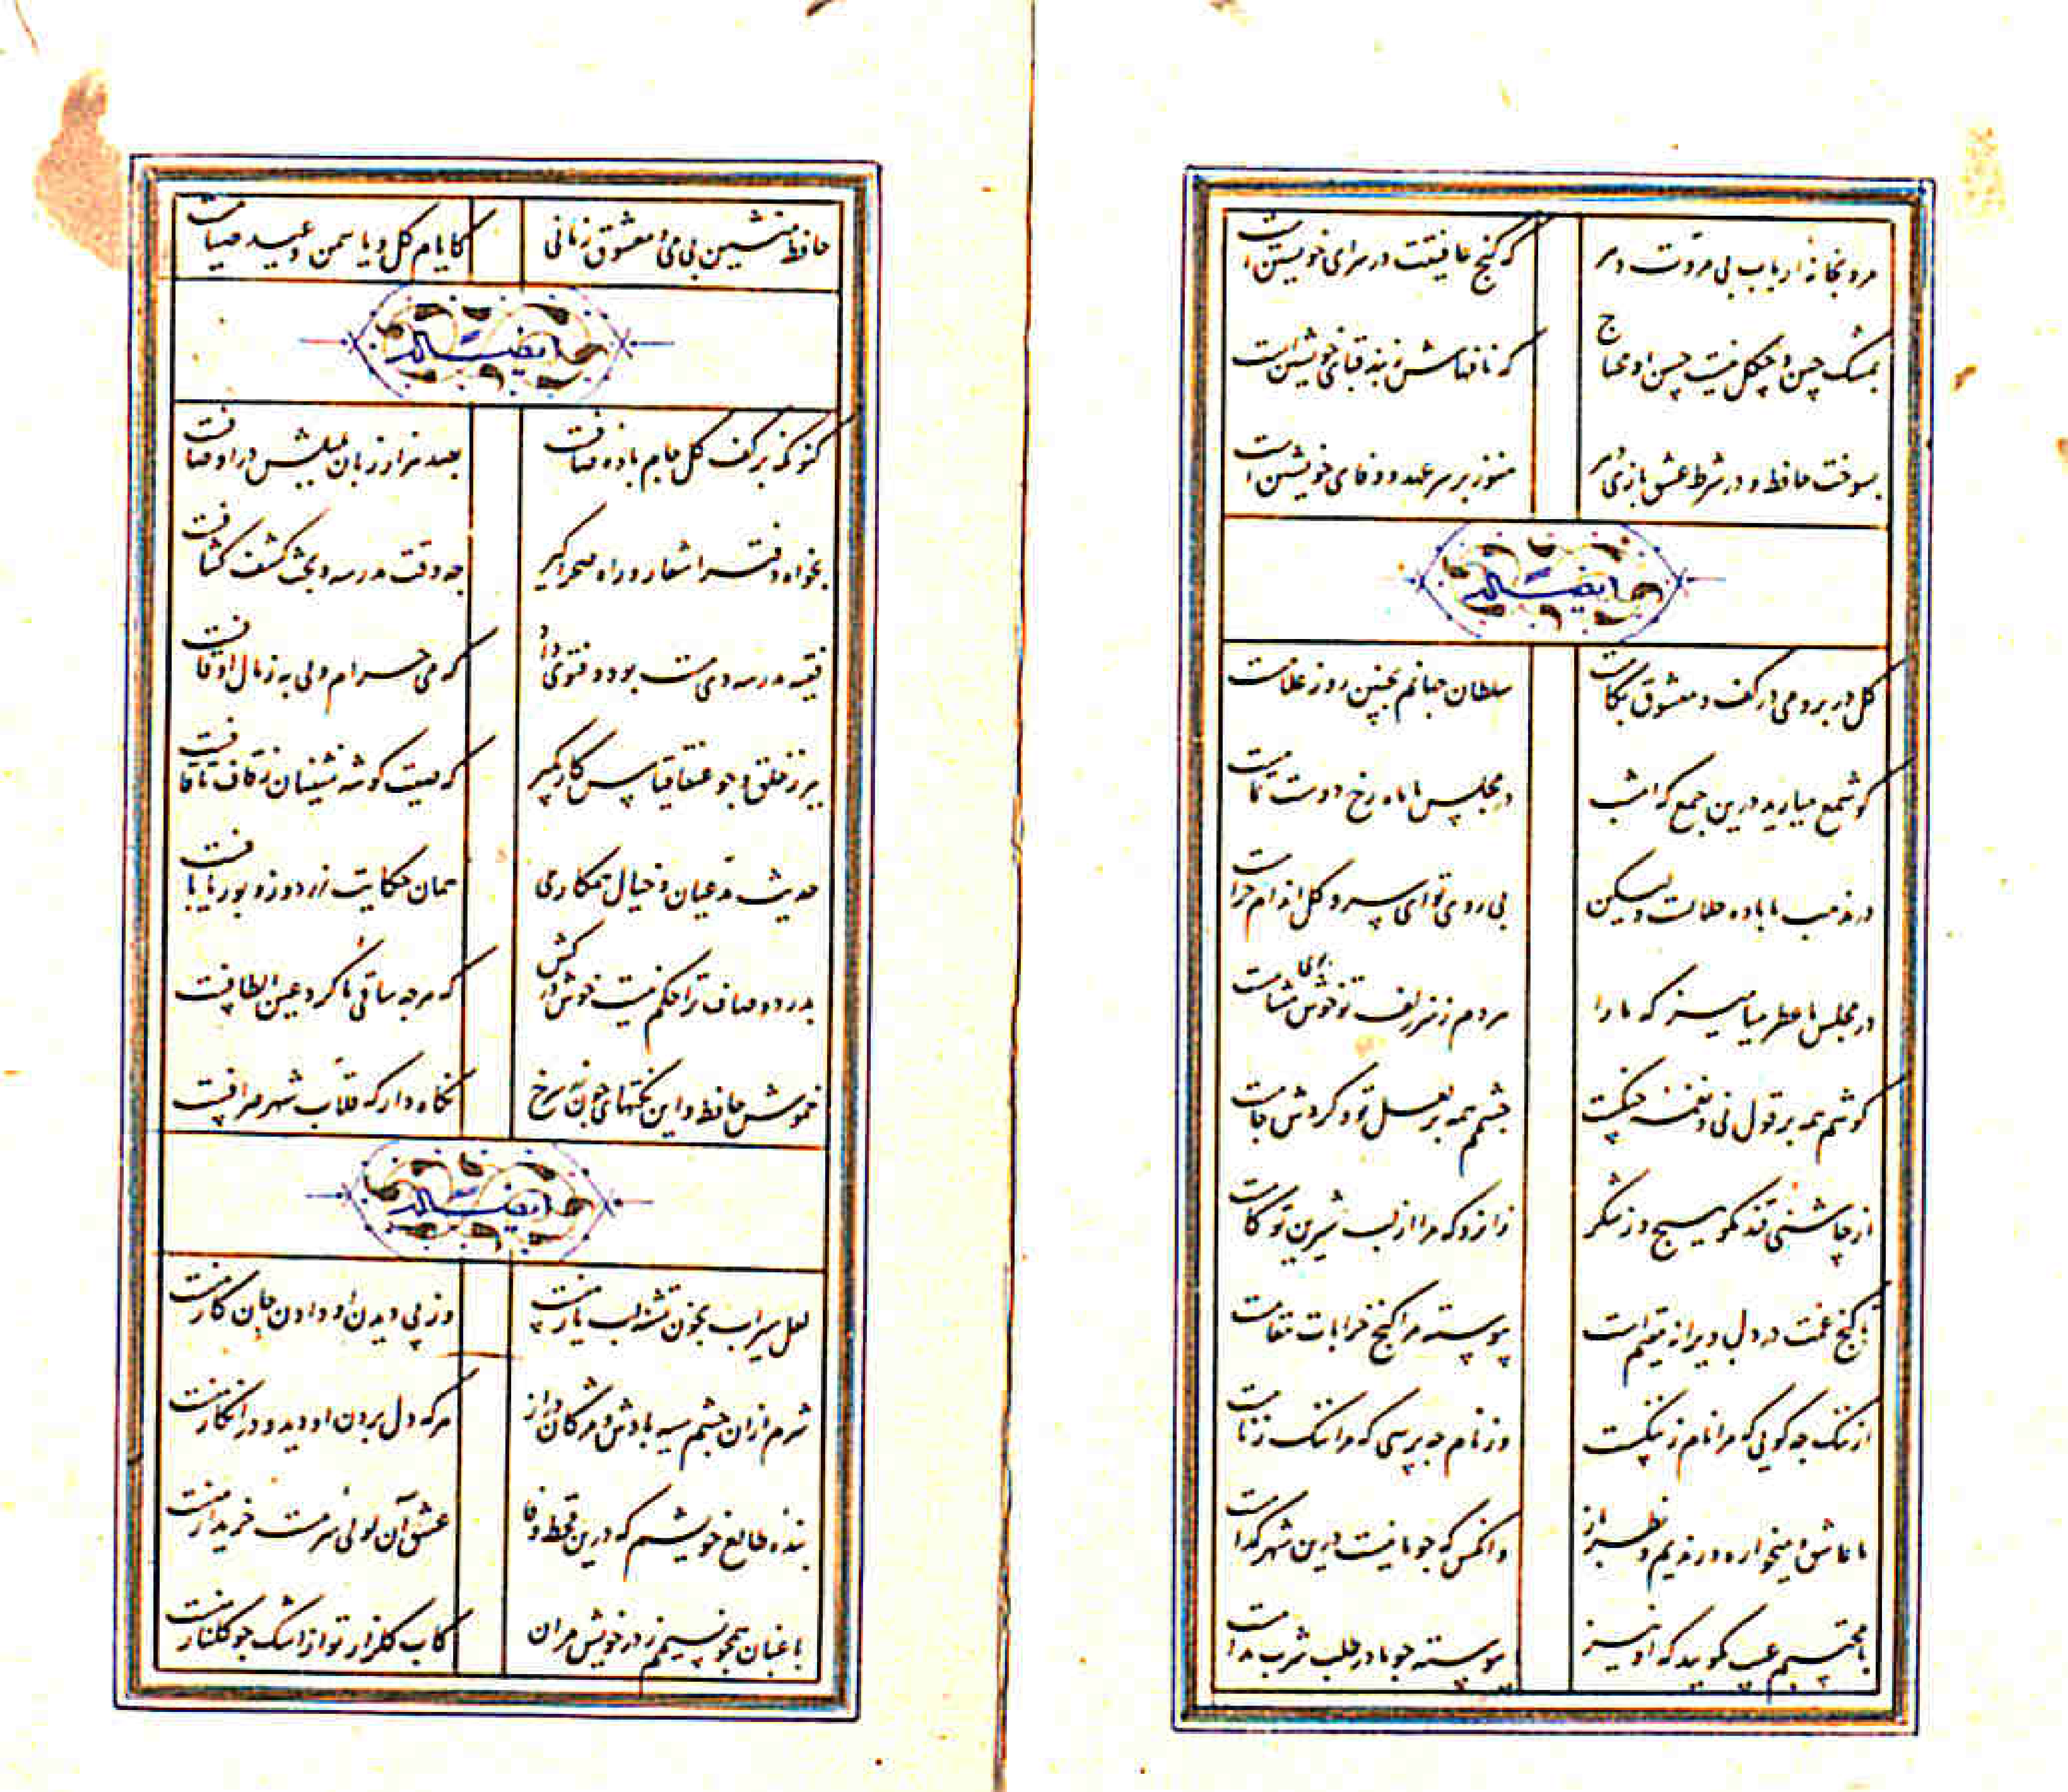 مرو بخانه ارباب بی مروت دهر که گنج عافیتت در سرای خویشتن است
بمشک چین و چگل نیست حسن او محتاج که نافهاش ز بند قبای خویشتن است
بسوخت حافظ و در شرط عشق بازی هنوز بر سر عهد و وفای خویشتن است
ایضا له
گل در بر و می در کف و معشوق بکامست سلطان جهانم بچنین روز غلامست
گو شمع میارید درین جمع که امشب در مجلس ما ماه رخ دوست تمامست
در مذهب ما باده حلالست ولیکن بی روی تو ای سرو گل اندام حرامست
در مجلس ما عطر میامیز که ما را هر دم ز سر زلف تو خوش بوی مشامست
گوشم همه بر قول نی و نغمه چنگست چشمم همه بر لعل تو و گردش جامست
از چاشنی قند مگو هیچ و ز شکر زانرو که مرا از لب شیرین تو کامست
تا گنج غمت در دل ویرانه مقیم است پیوسته مرا کنج خرابات مقامست
از ننگ چه گویی که مرا نام ز ننگست وز نام چه پرسی که مرا ننگ ز نامست
ما عاشق و میخواره و رندیم و نظرباز وانکس که چو ما نیست درین شهر کدامست
با محتسبم عیب مگویید که او نیز پیوسته چو ما در طلب شرب مدامست
حافظ منشین بی می و معشوق زمانی کایام گل و یاسمن و عید صیامست
ایضا له
کنون که بر کف گل جام باده صافست بصد هزار زبان بلبلش در اوصافست
بخواه دفتر اشعار و راه صحرا گیر چه وقت مدرسه و بحث کشف کشافست
فقیه مدرسه دی مست بود و فتوی داد که می حرام ولی به ز مال اوقافست
ببر ز خلق و چو عنقا قیاس کار بگیر که صیت گوشه نشینان ز قاف تا قافست
حدیث مدعیان و خیال همکاری همان حکایت زردوز و بوریابافست
بدرد و صاف ترا حکم نیست خوش درکش که هرچه ساقی ما کرد عین الطافست
خموش حافظ و این نکتهای چون زر سرخ نگاه دار که قلاب شهر صرافست
ایضا له
لعل سیراب بخون تشنه لب یار منست وز پی دیدن او دادن جان کار منست
شرم از آن چشم سیه بادش و مژگان دراز هرکه دل بردن او دید و در انکار منست
بنده طالع خویشم که درین قحط وفا عشق آن لولی سرمست خریدار منست
باغبان همچو نسیمم ز در خویش مران کاب گلزار تو از اشک چو گلنار منست